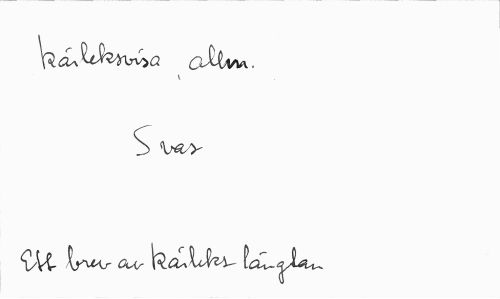 Kärleksvisa, allm.
Svar
Ett brev av kärleks längtan